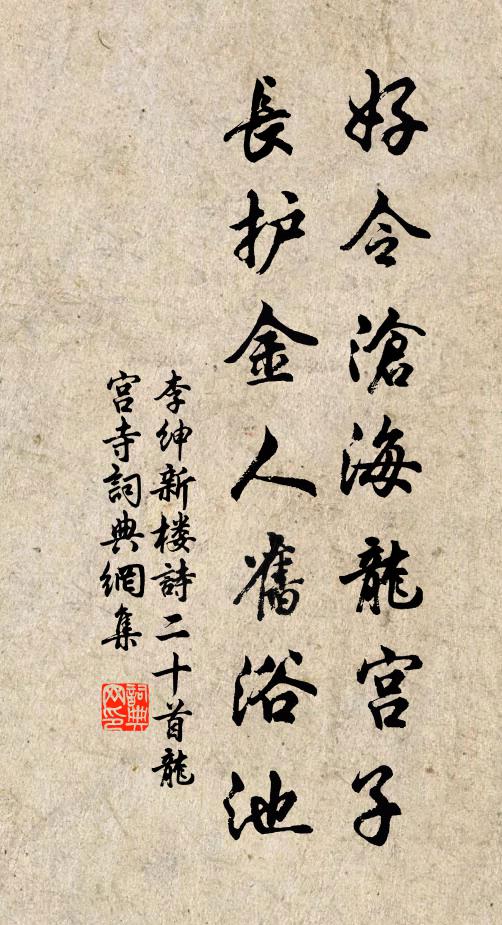 好令滄海龍宫子
長护金人舊浴池
李绅新楼詩二十首龍
宫寺詞典網集
詞典
网印